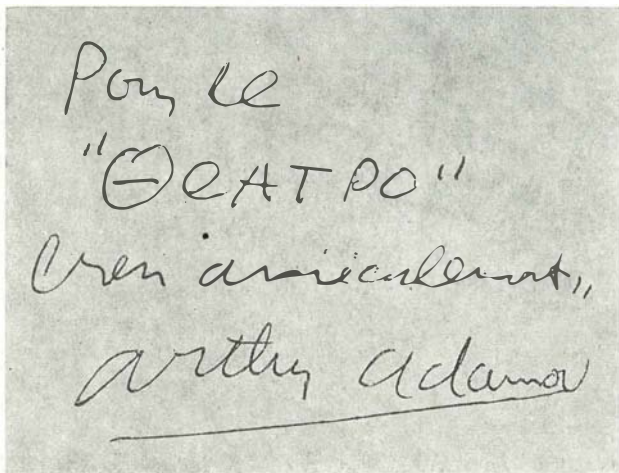 Pour le
"ΘΕΑΤΡΟ"
bien amicalement,,
arthur adamov